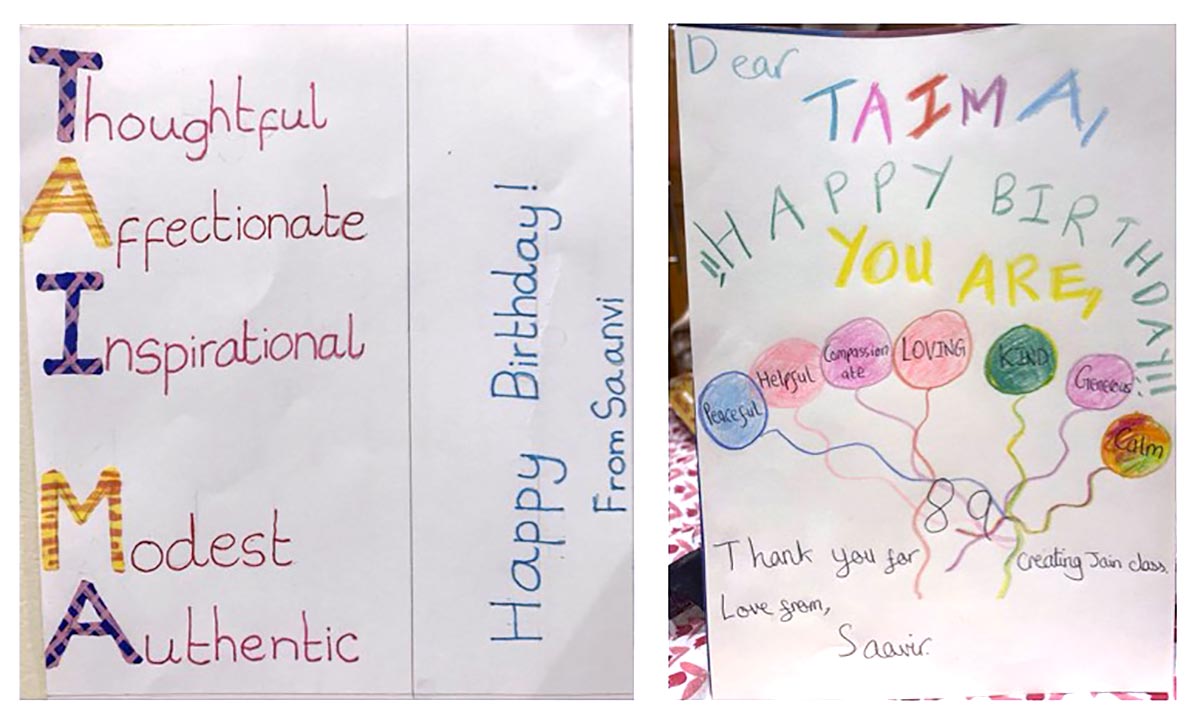 Thoughtful
Affectionate
Inspirational
Modest
Authentic
Happy Birthday!
From Saanvi
Dear
TAIMA,
!!HAPPY BIRTHDAY!!!
YOU ARE,
Peaceful
Helpful
Compassion
ate
LOVING
KIND
Generous
Calm
89
Thank you for creating Jain class.
Love from,
Saavir.